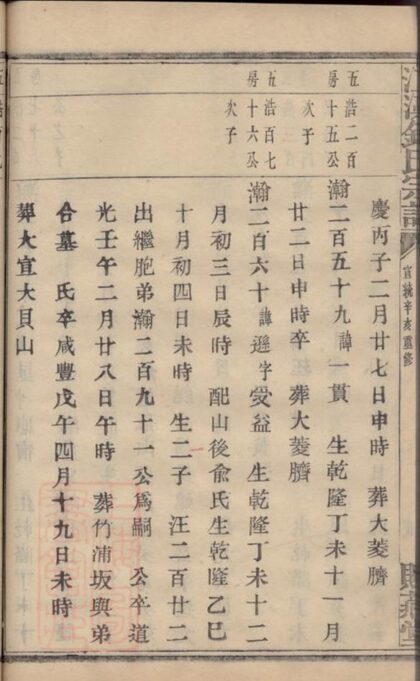 宣統辛亥重修
慶丙子二月廿七日申時　葬大菱臍
五房
浩二百十五公
次子
瀚二百五十九　諱一貫　生乾隆丁未十一月
廿二日申時卒　葬大菱臍
五房
浩百七十六公
次子
瀚二百六十　諱遜字受益　生乾隆丁未十二
月初三日辰時　配山後俞氏生乾隆乙巳
十月初四日未時　生二子　汪二百廿二
出繼胞弟瀚二百九十一公為嗣　公卒道
光壬午二月廿八日午時　葬竹浦坂與弟
合墓　氏卒咸豐戊午四月十九日未時
葬大宜大貝山